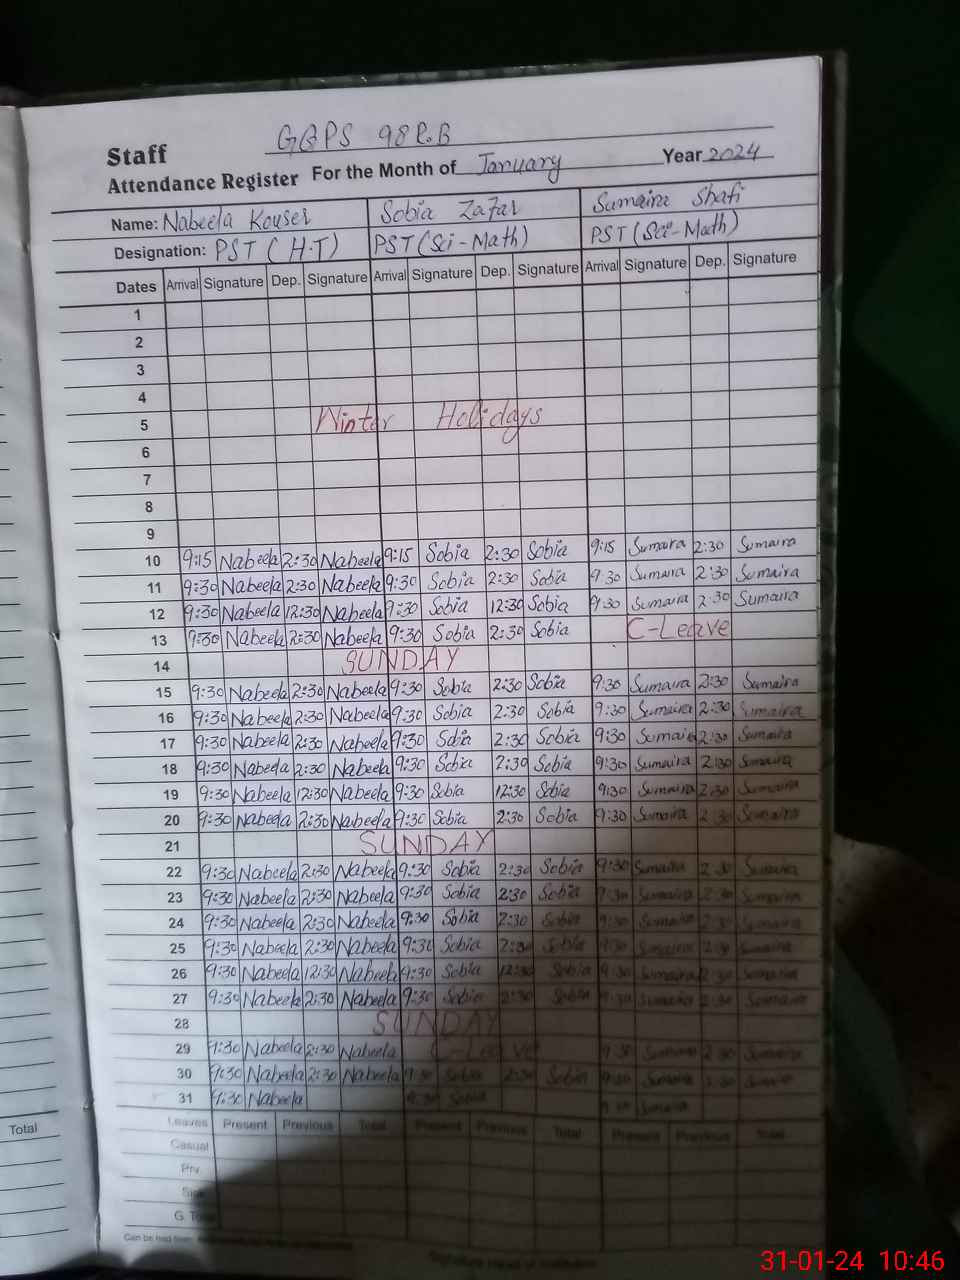 GGPS 98 R.B
Staff
Attendance Register For the Month of January Year 2024
Name: Nabeela Kouser Sobia Zafar Sumaira Shafi
Designation: PST (H.T) PST (Sci-Math) PST (Sci-Math)
Dates Arrival Signature Dep. Signature Arrival Signature Dep. Signature Arrival Signature Dep. Signature
1
2
3
4
5 Winter Holidays
6
7
8
9
10 9:15 Nabeela 2:30 Nabeela 9:15 Sobia 2:30 Sobia 9:15 Sumaira 2:30 Sumaira
11 9:30 Nabeela 2:30 Nabeela 9:30 Sobia 2:30 Sobia 9:30 Sumaira 2:30 Sumaira
12 9:30 Nabeela 12:30 Nabeela 9:30 Sobia 12:30 Sobia 9:30 Sumaira 2:30 Sumaira
13 9:30 Nabeela 2:30 Nabeela 9:30 Sobia 2:30 Sobia C-Leave
14 SUNDAY
15 9:30 Nabeela 2:30 Nabeela 9:30 Sobia 2:30 Sobia 9:30 Sumaira 2:30 Sumaira
16 9:30 Nabeela 2:30 Nabeela 9:30 Sobia 2:30 Sobia 9:30 Sumaira 2:30 Sumaira
17 9:30 Nabeela 2:30 Nabeela 9:30 Sobia 2:30 Sobia 9:30 Sumaira 2:30 Sumaira
18 9:30 Nabeela 2:30 Nabeela 9:30 Sobia 2:30 Sobia 9:30 Sumaira 2:30 Sumaira
19 9:30 Nabeela 12:30 Nabeela 9:30 Sobia 12:30 Sobia 9:30 Sumaira 2:30 Sumaira
20 9:30 Nabeela 2:30 Nabeela 9:30 Sobia 2:30 Sobia 9:30 Sumaira 2:30 Sumaira
21 SUNDAY
22 9:30 Nabeela 2:30 Nabeela 9:30 Sobia 2:30 Sobia 9:30 Sumaira 2:30 Sumaira
23 9:30 Nabeela 2:30 Nabeela 9:30 Sobia 2:30 Sobia 9:30 Sumaira 2:30 Sumaira
24 9:30 Nabeela 2:30 Nabeela 9:30 Sobia 2:30 Sobia 9:30 Sumaira 2:30 Sumaira
25 9:30 Nabeela 2:30 Nabeela 9:30 Sobia 2:30 Sobia 9:30 Sumaira 2:30 Sumaira
26 9:30 Nabeela 12:30 Nabeela 9:30 Sobia 12:30 Sobia 9:30 Sumaira 2:30 Sumaira
27 9:30 Nabeela 2:30 Nabeela 9:30 Sobia 2:30 Sobia 9:30 Sumaira 2:30 Sumaira
28 SUNDAY
29 9:30 Nabeela 2:30 Nabeela C-Leave 9:30 Sumaira 2:30 Sumaira
30 9:30 Nabeela 2:30 Nabeela 9:30 Sobia 2:30 Sobia 9:30 Sumaira 2:30 Sumaira
31 9:30 Nabeela 9:30 Sobia 9:30 Sumaira
Leaves Present Previous Total Present Previous Total Present Previous Total
Casual
Priv.
Sick
G. Total
Can be had from
Signature Head of Institution
Total
31-01-24 10:46